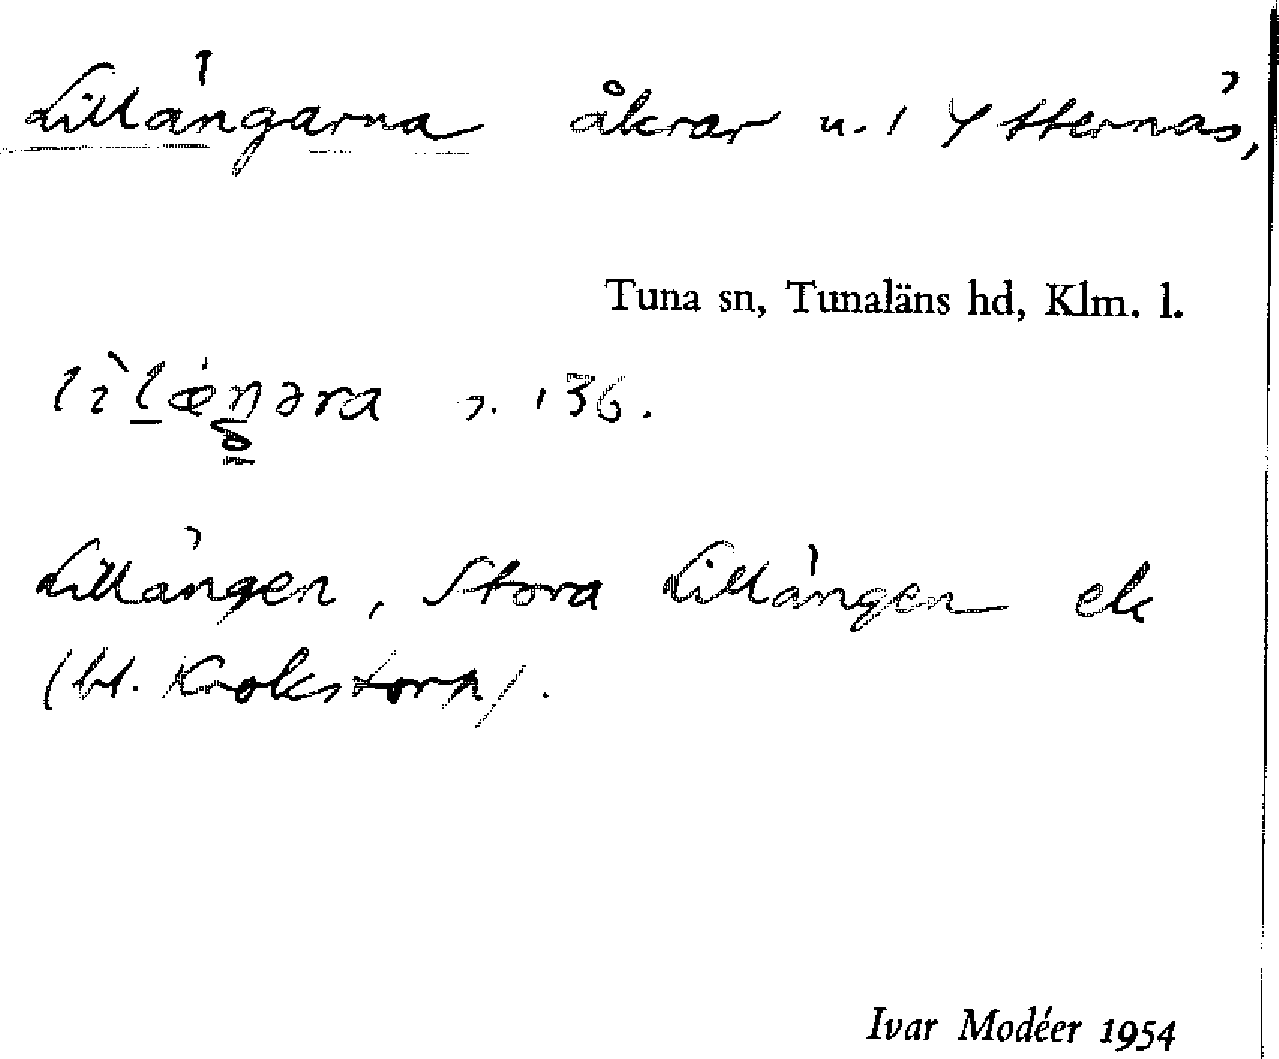 Lillängarna åkrar u. 1 Ytternäs,
Tuna sn, Tunaläns hd, Klm. l.
lìlæŋəra s. 136.
Lillängen, Stora Lillängen ek
(bl. Krokstorn).
Ivar Modéer 1954